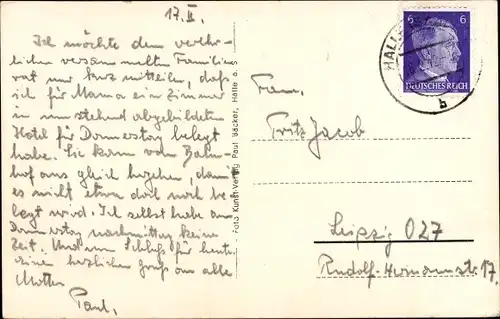 17. II.
Ich möchte dem verehr-
lichen versammelten Familien
rat nur kurz mitteilen, daß
ich für Mama ein Zimmer
in umstehend abgebildeten
Hotel für Donnerstag belegt
habe. Sie kann vom Bahn-
hof aus gleich hingehen, damit
es nicht etwa doch noch be
legt wird. Ich selbst habe am
Donnerstag nachmittag keine
Zeit. Und zum Schluß für heute
eine herzlichen Gruß an alle
Paul.
Foto Kunst-Verlag Paul Bäcker, Halle a. S.
HALLE
6 6
DEUTSCHES REICH
b
Fam.
Fritz Jacob
Leipzig O27
Rudolf-Hermannstr 17.